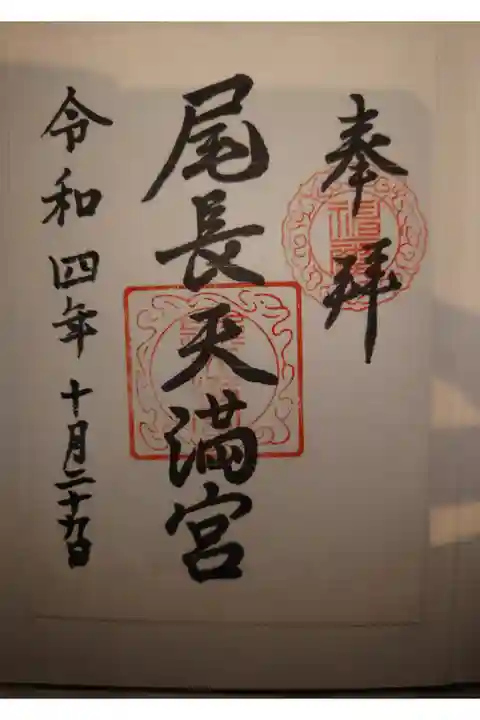 奉拝
尾長天満宮
令和四年十月二十九日